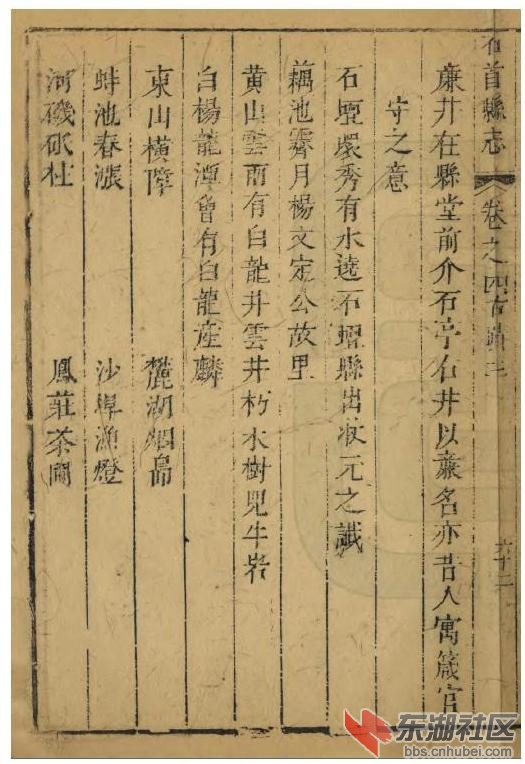 石首縣志
卷之四古蹟
六十二
廉井在縣堂前介石亭右井以廉名亦昔人寓箴官
守之意
石壇環秀有水遶石壇縣出狀元之讖
藕池霽月楊文定公故里
黄山雲雨有白龍井雲井朽木樹兕牛岩
白楊龍潭曾有白龍産麟
東山橫障 麓湖烟
蚌池春漲 沙 漁燈
河磯砥柱 鳳莊茶
东湖社区
bbs.cnhubei.com